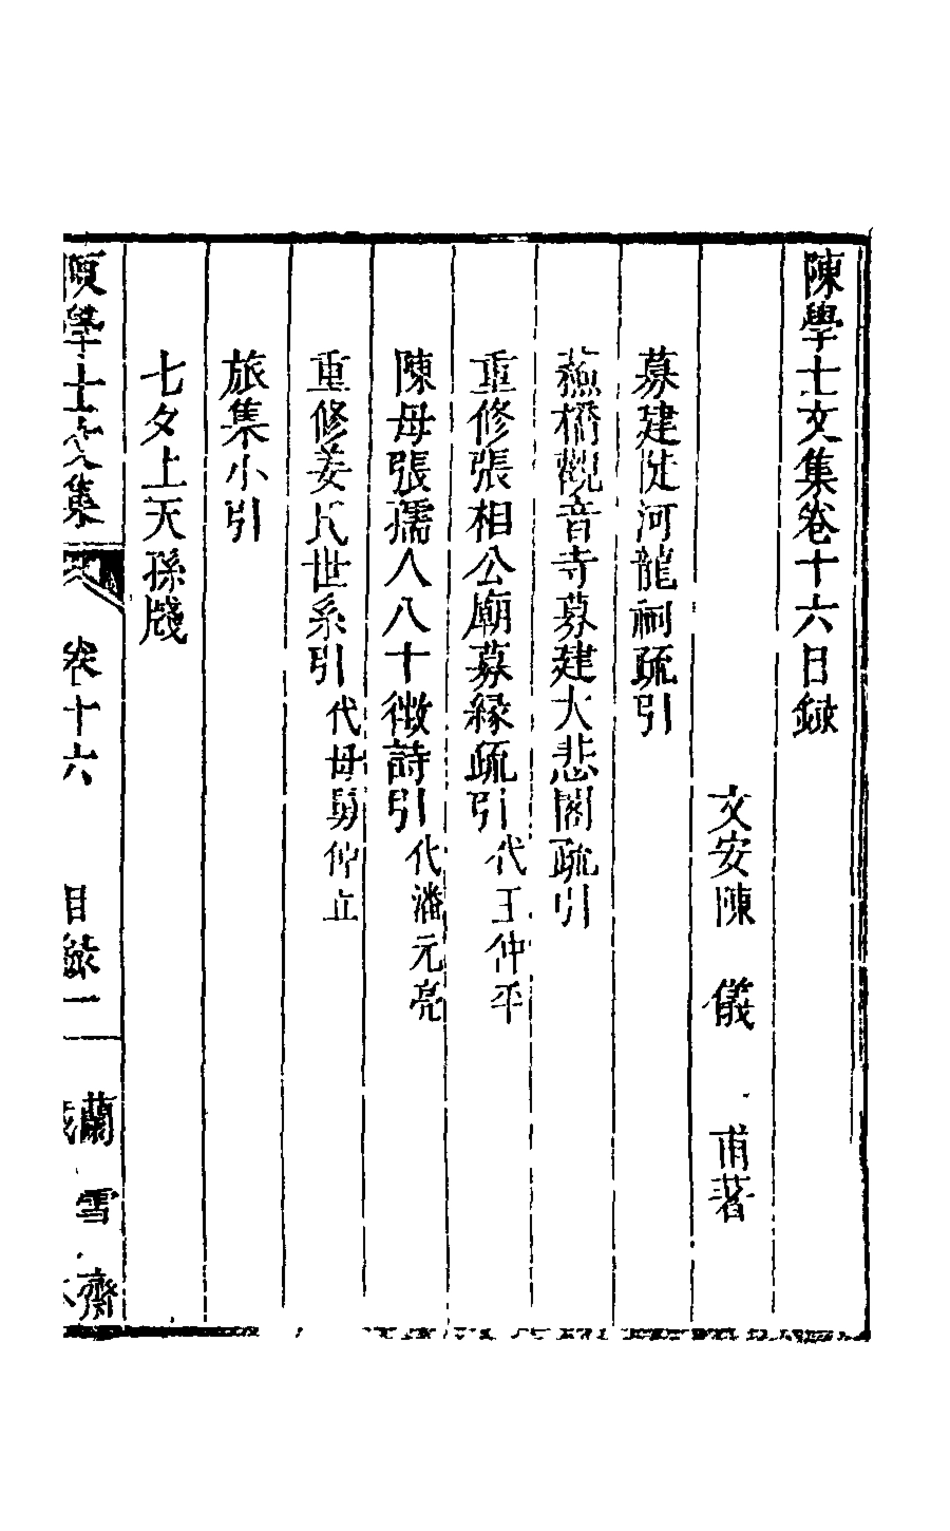 陳學士文集卷十六目錄
文安陳　儀　甫著
募建徙河龍祠疏引
燕橋觀音寺募建大悲閣疏引
重修張相公廟募緣疏引代王仲平
陳母張孺人八十徵詩引代潘元亮
重修姜氏世系引代母舅仲立
旅集小引
七夕上天孫牋
陳學士文集　卷十六　目錄一　蘭雪齋